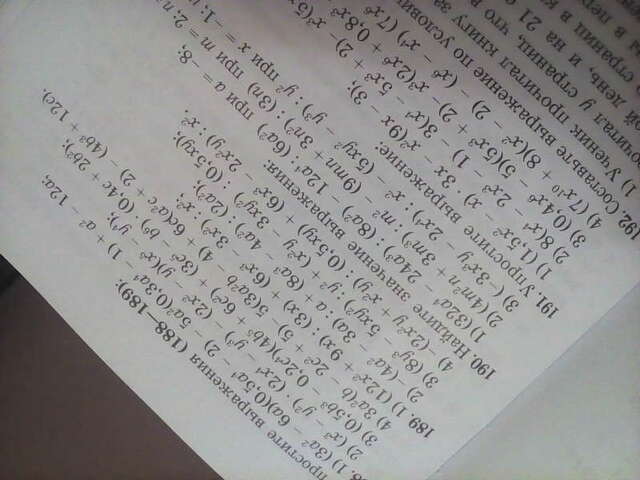 простите выражения (188—189):
1) (3a² − 6a)(0,5a⁴ − 2) − 5a²(0,3a⁴ − 1) + a² − 12a;
2) (x³ − y²) · (2x⁴ − y³) − (2x² − y)(x⁵ − y⁴);
3) (0,5b³ − 0,2c⁴)(4b⁵ + 6c²) + (3c⁵ − b⁶) · (0,4c + 2b²);
4) 3a²(b − 2c² + 5) − 5(3a²b − 4) + 6c(a²c + 2) − (4b³ + 12c).
189. 1) (12x² + 9x) : (3x) + (6x³ − 3x²) : x²;
2) −(4a² − 3a) : a + (8a³ − 4a²) : (2a²);
3) (8y³ − 5xy²) : y² + (x²y − 3xy²) : (0,5xy);
4) −(2x²y + x²y) : (0,5xy) + (6x³ − 2x²y) : x².
190. Найдите значение выражения:
1) (32a⁴ − 24a³) : (8a²) − 12a⁴ : (6a²) при a = −8;
2) (4m²n + 3m³) : m² − (9mn + 3n²) : (3n) при m = 2;
3) (−3x³y − 2x⁴) : x² − (5xy² − y³) : y² при x = −1;
191. Упростите выражение:
1) (1,5x² − x) · 3x − x²(9x − 3);
2) 8(x⁴ − 2x³ − 1) − 3(x⁴ − 5x³ + 2) − x³(5x
3) (0,4x⁶ − 5)(5x³ + 2) − x³(2x⁶ + 0,8x³
4) (7x¹⁰ + 8)(x² − 2) − (x⁶ − x⁴) (7x⁶
192. Составьте выражение по условию
1) Ученик прочитал книгу за
прочитал y страниц, что в
день, и на 21
страниц в
в пер